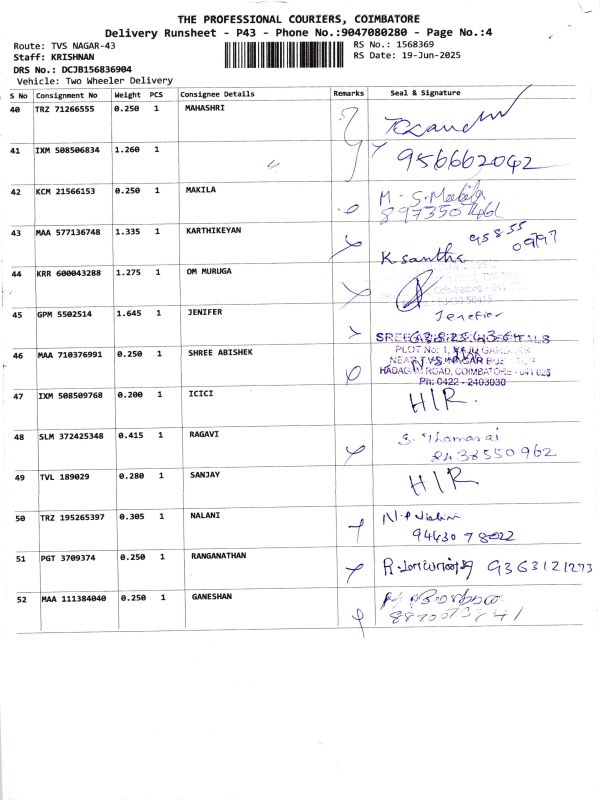 THE PROFESSIONAL COURIERS, COIMBATORE
Delivery Runsheet - P43 - Phone No.:9047080280 - Page No.:4
Route: TVS NAGAR-43 RS No.: 1568369
Staff: KRISHNAN RS Date: 19-Jun-2025
DRS No.: DCJB156836904
Vehicle: Two Wheeler Delivery
S No Consignment No Weight PCS Consignee Details Remarks Seal & Signature
40 TRZ 71266555 0.250 1 MAHASHRI
41 IXM 508506834 1.260 1 956662042
42 KCM 21566153 0.250 1 MAKILA M. S. Makila
43 MAA 577136748 1.335 1 KARTHIKEYAN K santha 95855 09797
44 KRR 600043288 1.275 1 OM MURUGA
45 GPM 5502514 1.645 1 JENIFER Jenefier
46 MAA 710376991 0.250 1 SHREE ABISHEK
PLOT No: 1,
NEAR TVS NAGAR
ROAD, COIMBATORE - 641 025
Ph: 0422 - 2403030
47 IXM 508509768 0.200 1 ICICI H/R.
48 SLM 372425348 0.415 1 RAGAVI S. Thamarai
8438550962
49 TVL 189029 0.280 1 SANJAY H/R
50 TRZ 195265397 0.305 1 NALANI
94430 78022
51 PGT 3709374 0.250 1 RANGANATHAN 9363121273
52 MAA 111384040 0.250 1 GANESHAN